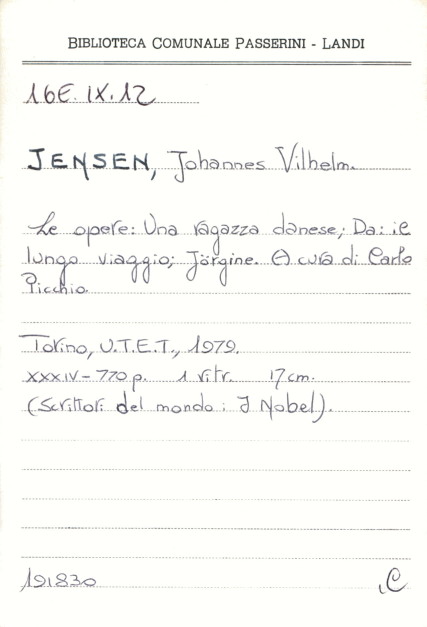 BIBLIOTECA COMUNALE PASSERINI - LANDI
16E. IX. 12
JENSEN, Johannes Vilhelm.
Le opere: Una ragazza danese; Da: il
lungo viaggio; Jörgine. A cura di Carlo
Picchio.
Torino, U.T.E.T., 1979.
XXXIV - 770 p. 1 ritr. 17 cm.
(Scrittori del mondo: I Nobel).
191830